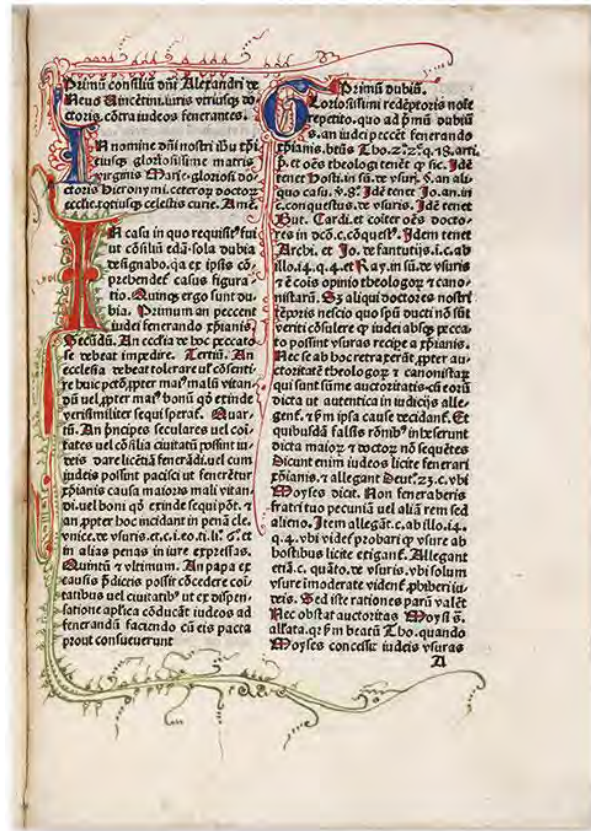 Primū consiliū dñi Alexandri de
Neuo Uincētini. iuris vtriusqꝫ do-
ctoris. cōtra iudeos fenerantes.
In nomine dñi nostri ihu xp̄i
eiusqꝫ gloriosissime matris
virginis Marie. gloriosi do-
ctoris Hieronymi. ceteroꝝ doctoꝝ
ecclie. totiusqꝫ celestis curie. Amē.
In casu in quo requisitꝰ fui
ut cōsiliū edā. sola dubia
designabo. qa ex ipsis cō-
prehendet᷑ casus figura-
tio. Quinqꝫ ergo sunt du-
bia. Primum an peccent
iudei fenerando xp̄ianis
Secūdū. An ecclīa de hoc peccato
se debeat impedire. Tertiū. An
ecclesia debeat tolerare ul̓ cōsenti-
re huic pctō. ꝓpter maiꝰ malū vitan-
dū uel ꝓpter maiꝰ bonū qd̄ exinde
verisimiliter sequi sperat᷑. Quar-
tū. An p̄ncipes seculares uel coi-
tates uel cōsilia ciuitatū possint iu-
deis dare licētiā fenerādi. uel cum
iudeis possint pacisci ut fenerētur
xp̄ianis causa maioris mali vitan-
di. uel boni qd̄ exinde sequi pōt. ⁊
an ꝓpter hoc incidant in penā cle.
vnice. de vsuris. et. c. i. eo. ti. li. 6. et
in alias penas in iure expressas.
Quintū ⁊ vltimum. An papa ex
causis p̄dictis possit cōcedere coi-
tatibus uel ciuitatibꝰ ut ex dispen-
satione apl̄ica cōducāt iudeos ad
fenerandū faciendo cū eis pacta
prout consueuerunt
Primū dubiū.
Gloriosissimi redēptoris nōīe
repetito. quo ad p̄mū dubiū
s. an iudei peccēt fenerando
xp̄ianis. btūs Tho. 2. 2. q. 18. arti.
p̄. et oēs theologi tenēt ꝙ sic. Idē
tenet Hosti. in sū. de vsuris. §. an ali-
quo casu. v̄. 8. Idē tenet Jo. an. in
c. conquestus. de vsuris. Idē tenet
But. Cardi. et cōiter oēs docto-
res in dcō. c. cōquestꝰ. Idem tenet
Archi. et Jo. de fantutijs. i. c. ab
illo. 14. q. 4. et Ray. in sū. de vsuris
⁊ ē cōis opinio theologoꝝ ⁊ cano-
nistarū. Sꝫ aliqui doctores nostri
tēporis nescio quo spū ducti nō sūt
veriti cōsulere ꝙ iudei absqꝫ pecca-
to possint vsuras recipe a xp̄ianis.
Nec se ab hoc retraxerāt ꝓpter au-
ctoritatē theologoꝝ ⁊ canonistaꝝ
qui sunt sūme auctoritatis. cū eorū
dicta ut autentica in iudicijs alle-
gent᷑. ⁊ ẜm ipsa cause decidant᷑. Et
quibusdā falsis rōnibꝰ inheserunt
dicta maioꝝ ⁊ doctoꝝ nō sequētes
Dicunt enim iudeos licite fenerari
xp̄ianis. ⁊ allegant Deut̓. 23. c. vbi
Moyses dicit. Non feneraberis
fratri tuo pecuniā uel aliā rem sed
alieno. Item allegāt. c. ab illo. 14.
q. 4. vbi videt᷑ probari ꝙ vsure ab
hostibus licite exigant᷑. Allegant
etiā. c. quāto. de vsuris. vbi solum
vsure imoderate vident᷑ ꝓhiberi iu-
deis. Sed iste rationes parū valēt
Nec obstat auctoritas Moysi s̄.
all̓ata. qꝛ ẜm beatū Tho. quando
Moyses concessit iudeis vsuras
A